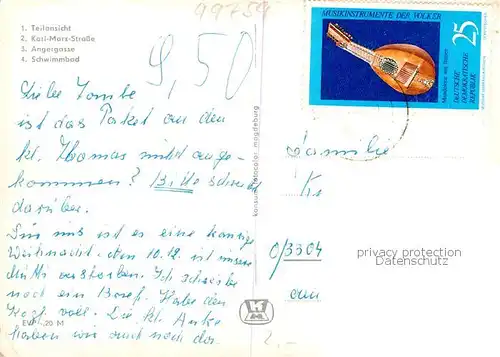 99759
1. Teilansicht
2. Karl-Marx-Straße
3. Angergasse
4. Schwimmbad
9,50
MUSIKINSTRUMENTE DER VÖLKER
25
DEUTSCHE
DEMOKRATISCHE
REPUBLIK
Liebe
ist das Paket an den
kl. Thomas nicht ange-
kommen? Bitte schreibt
darüber.
Für uns ist es eine traurige
Weihnacht. Am 10.12. ist unsere
Mutti verstorben. Ich schreibe
noch ein Brief. Habe den
Kopf voll. Die kl. Anke
haben wir auch noch da.
konsum fotocolor magdeburg
Familie
O/3304
privacy protection
Datenschutz
2.-